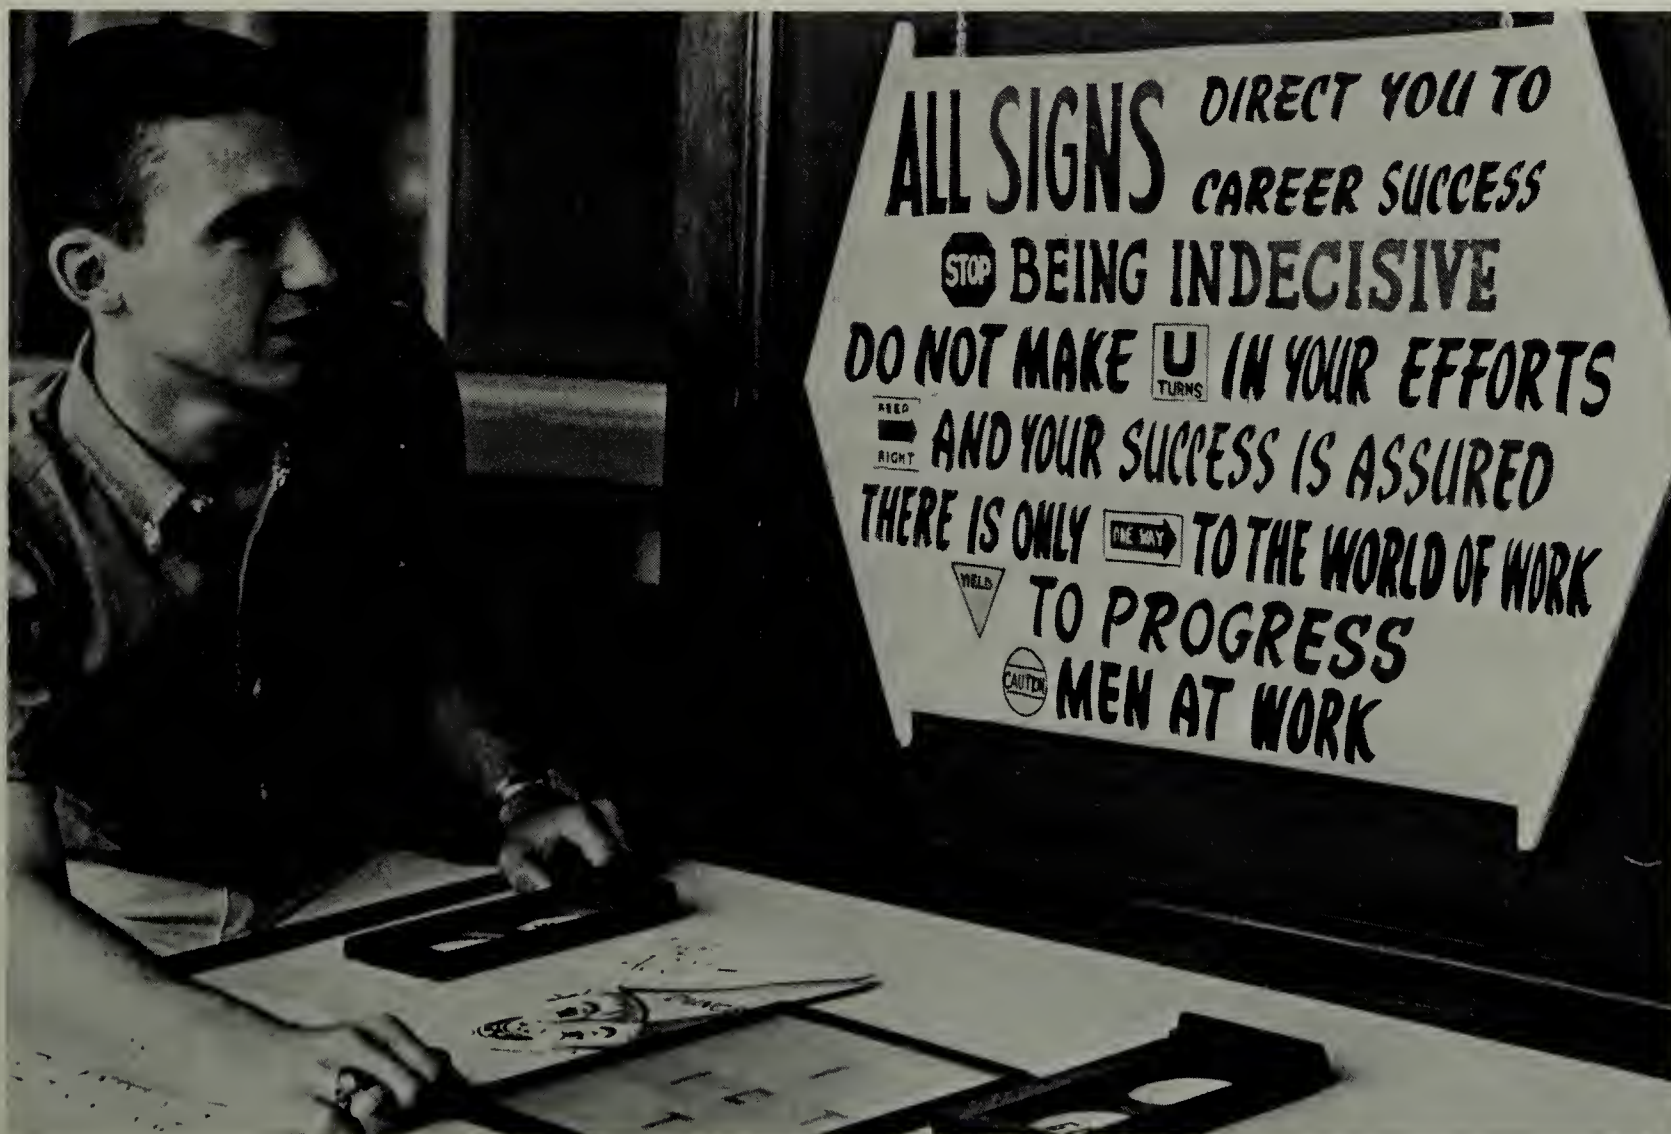 ALL SIGNS DIRECT YOU TO
CAREER SUCCESS
STOP BEING INDECISIVE
DO NOT MAKE U TURNS IN YOUR EFFORTS
KEEP RIGHT AND YOUR SUCCESS IS ASSURED
THERE IS ONLY ONE WAY TO THE WORLD OF WORK
YIELD TO PROGRESS
CAUTION MEN AT WORK